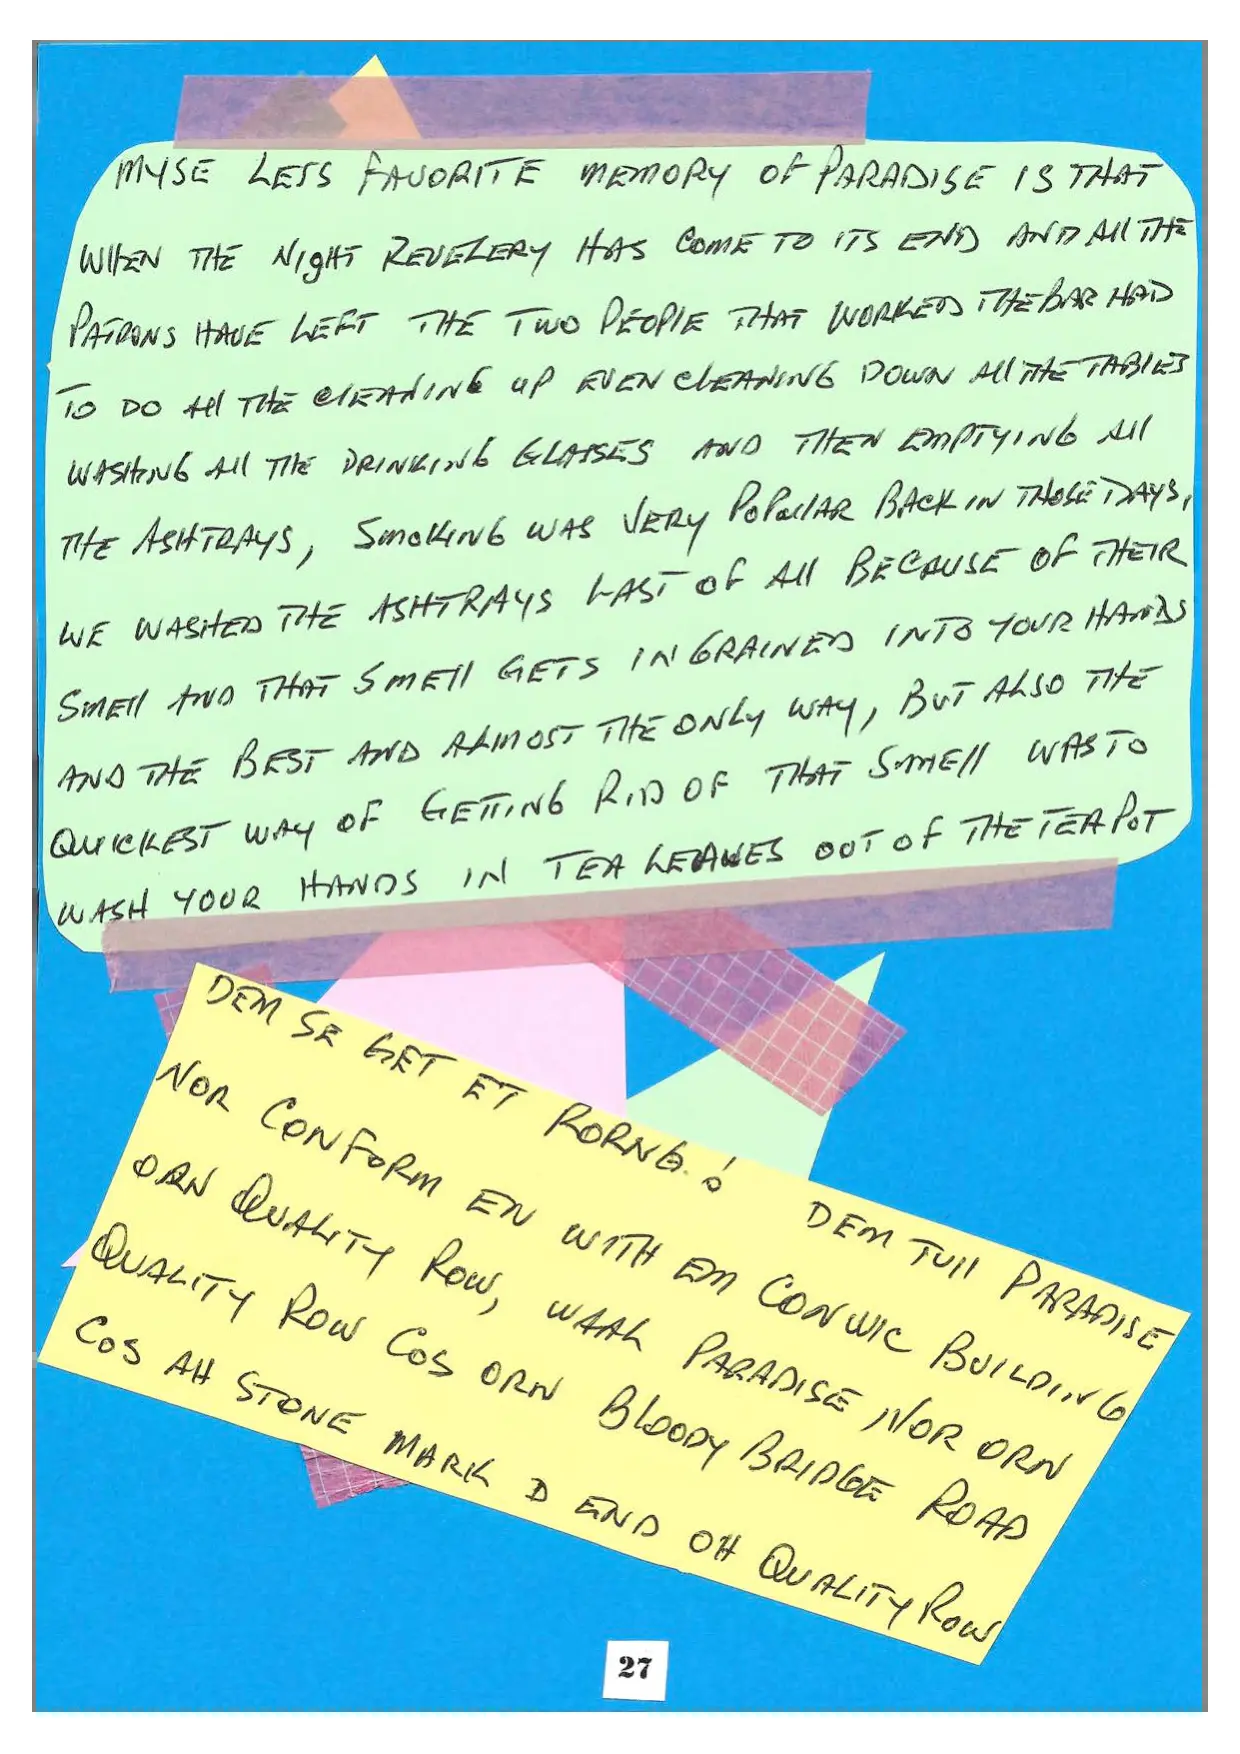 MYSE LESS FAVORITE MEMORY OF PARADISE IS THAT
WHEN THE NIgHT REVELERY HAS COME TO ITS END AND All THE
PATRONS HAVE LEFT THE TWO PEOPlE THAT WORKED THE BAR HAD
TO DO All THE ClEANING UP EVEN ClEANING DOWN All THE TABlES
WASHING All THE DRINKING GLASSES AND THEN EMPTYING All
THE ASHTRAYS, SMOKING WAS VERY POPUlAR BACK IN THOSE DAYS,
WE WASHED THE ASHTRAYS LAST OF All BECAUSE OF THEIR
SMEll AND THAT SMEll GETS INGRAINED INTO YOUR HANDS
AND THE BEST AND ALMOST THE ONLY WAY, BUT ALSO THE
QUICKEST WAY OF GETTING RID OF THAT SMEll WAS TO
WASH YOUR HANDS IN TEA LEAVES OUT OF THE TEAPOT
DEM SE GET ET RORNG.! DEM TUll PARADISE
NOR CONFORM EN WITH EM CONWIC BUILDING
ORN QUALITY ROW, WAAL PARADISE NOR ORN
QUALITY ROW COS ORN BLOODY BRIDGE ROAD
COS AH STONE MARK D END OH QUALITY ROW
27